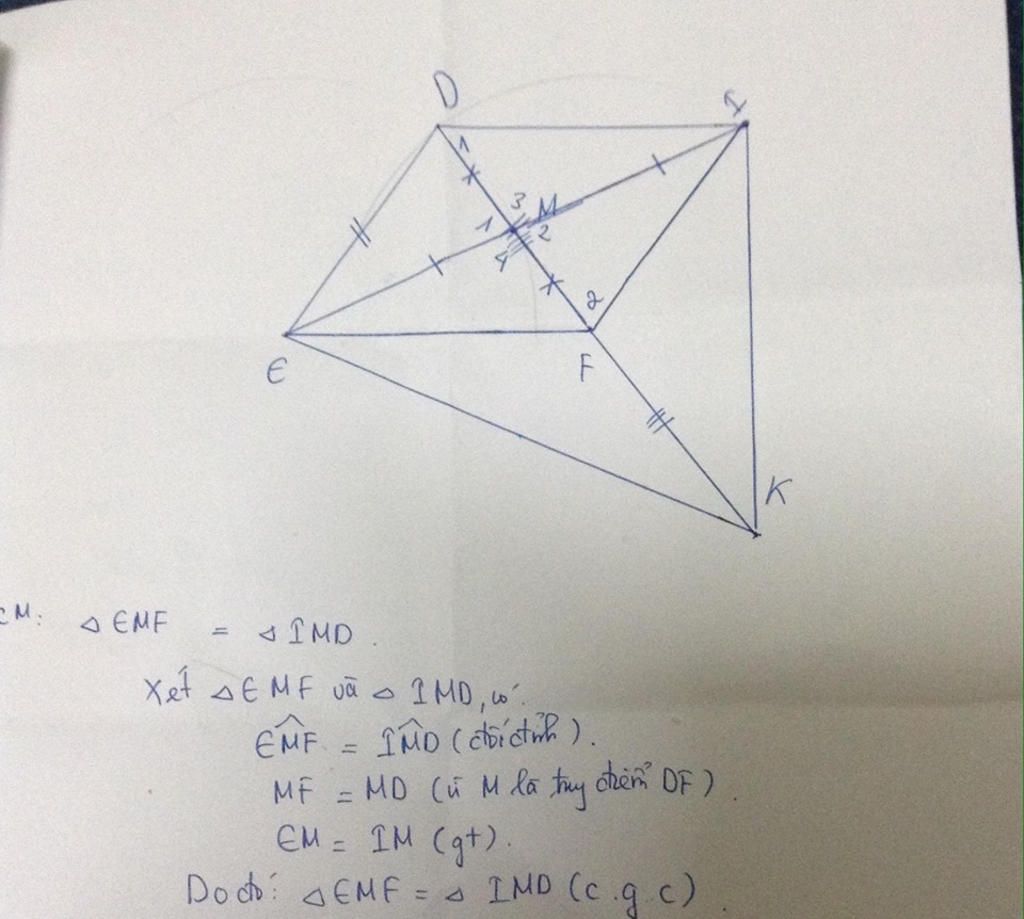 D
I
1
3 M
1 2
4
2
E
F
K
CM: △ EMF = △ IMD.
Xét △ EMF và △ IMD, có:
E\widehat{M}F = I\widehat{M}D (đối đỉnh).
MF = MD (vì M là trung điểm DF).
EM = IM (gt).
Do đó: △ EMF = △ IMD (c.g.c).